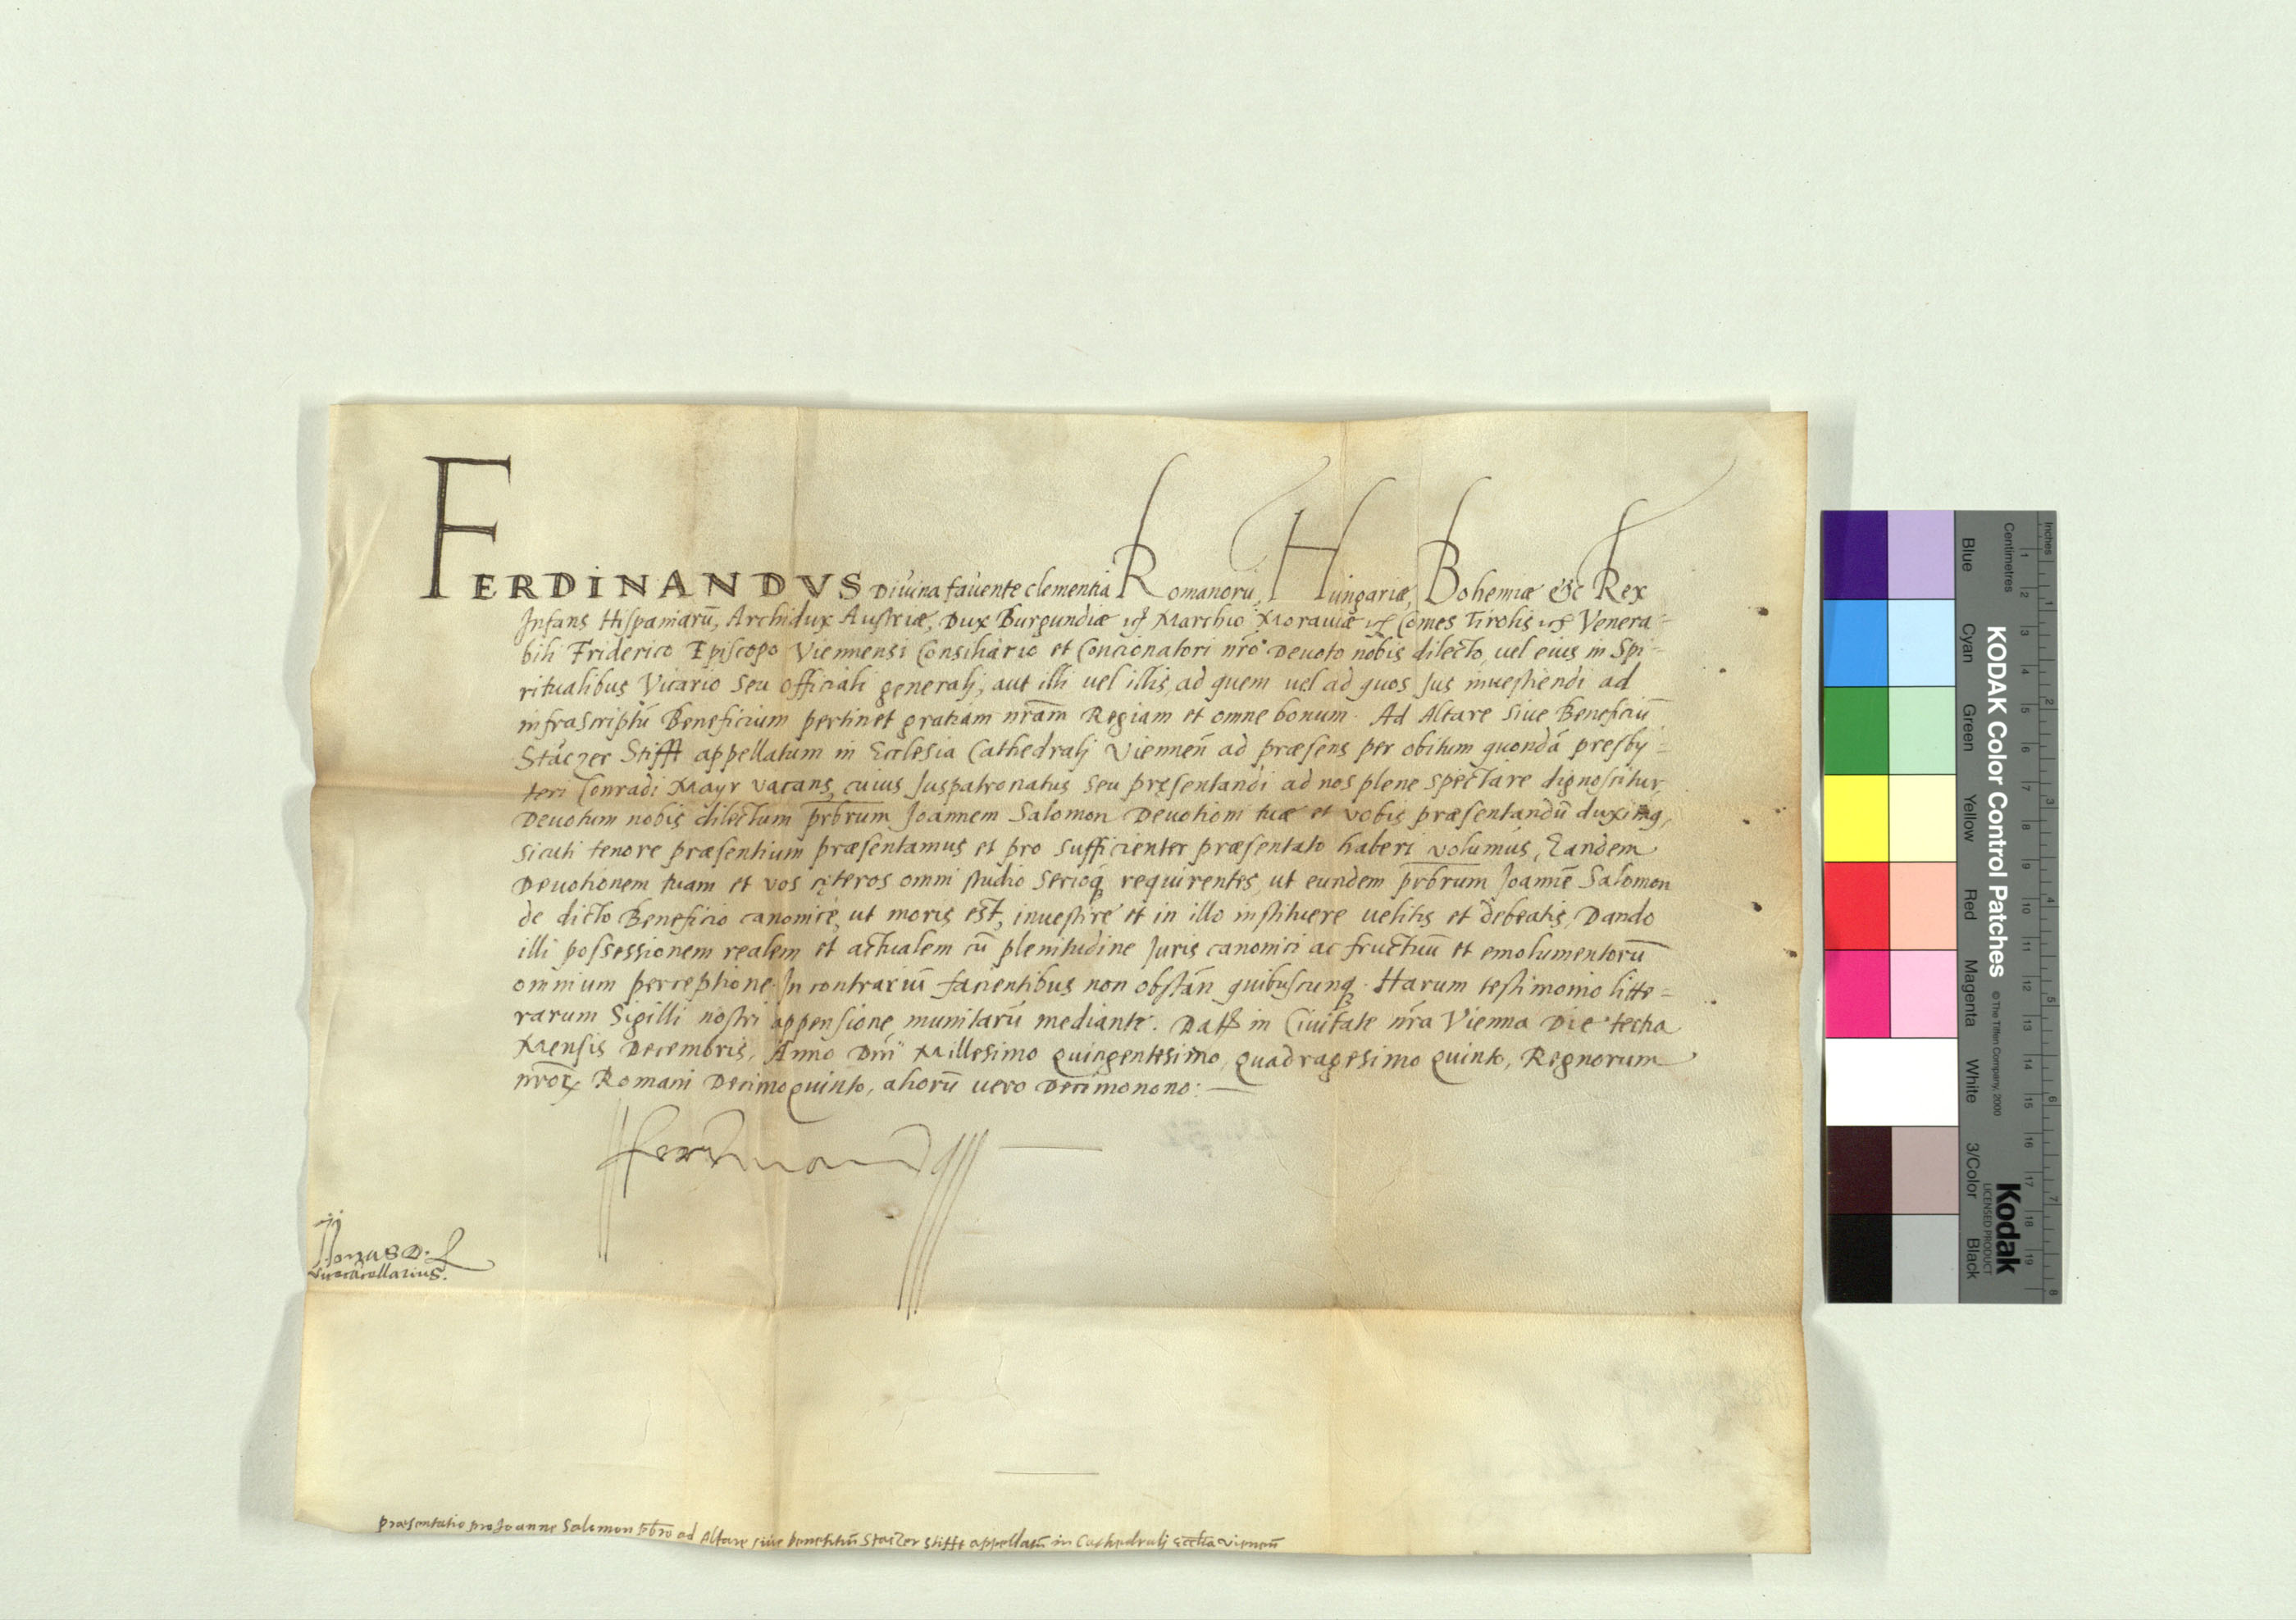 FERDINANDVS Diuina fauente clementia Romanorū, Hungariæ, Bohemiæ &c Rex
Infans Hispaniarū, Archidux Austriæ, Dux Burgundiæ &c Marchio Morauiæ &c Comes Tirolis &c Venera=
bili Friderico Episcopo Viennensi Consiliario et Concionatori nr̄o Deuoto nobis dilecto, uel eius in Spi=
ritualibus Vicario seu officiali generalj, aut illi uel illis, ad quem uel ad quos Jus inuestiendi ad
infrascriptū Beneficium pertinet gratiam nr̄am Regiam et omne bonum. Ad Altare siue Beneficiū
Stáczer Stifft appellatum in Ecclesia Cathedralj Viennen̄ ad præsens per obitum quondā presby=
teri Conradi Mayr vacans, cuius Juspatronatus seu pręsentandi ad nos plene spectare dignoscitur,
Deuotum nobis dilectum pr̄brum Joannem Salomon Deuotioni tuæ et vobis præsentandū duximq,
sicuti tenore præsentium præsentamus et pro sufficienter præsentato haberi volumus, Eandem
Deuotionem tuam et vos cęteros omni studio serioq́ requirentes, ut eundem pr̄brum Joannē Salomon
de dicto Beneficio canonicè, ut moris est, inuestire et in illo instituere uelitis et debeatis, Dando
illi possessionem realem et actualem cū plenitudine Juris canonici ac fructuū et emolumentorū
omnium perceptione. In contrariū facientibus non obstan̄ quibuscunq. Harum testimonio litte=
rarum Sigilli nostri appensione munitarū mediante. Datt in Ciuitate nr̄a Vienna Die tertia
Mensis Decembris, Anno Dn̄i Millesimo Quingentesimo, Quadragesimo Quinto, Regnorum
nr̄oꝝ Romani Decimoquinto, aliorū uero Decimonono:
Ferdinand
Jonas D.
Vicecācellarius.
præsentatio pro Joanne Salomon pr̄bro ad Altare siue beneficiū Staczer Stifft appellatū in Cathedralj Eccl̄ia Vienen̄
KODAK Color Control Patches
© The Tiffen Company, 2000
Kodak
LICENSED PRODUCT
Blue Cyan Green Yellow Red Magenta White 3/Color Black
Inches 1 2 3 4 5 6 7 8
Centimetres 1 2 3 4 5 6 7 8 9 10 11 12 13 14 15 16 17 18 19